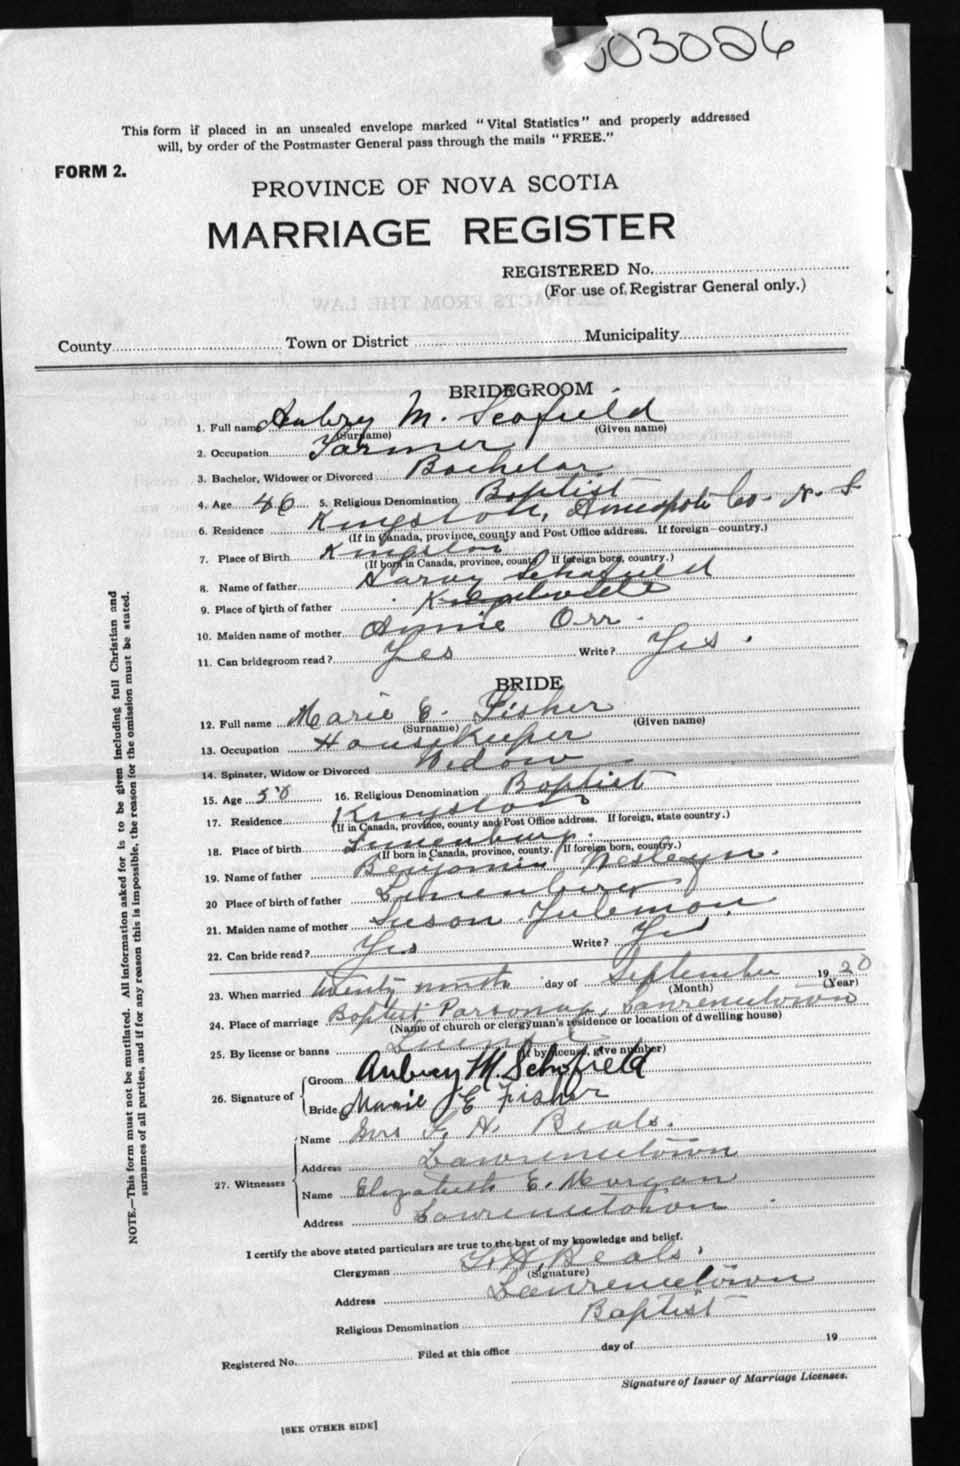 003026
This form if placed in an unsealed envelope marked "Vital Statistics" and properly addressed
will, by order of the Postmaster General pass through the mails "FREE."
FORM 2.
PROVINCE OF NOVA SCOTIA
MARRIAGE REGISTER
REGISTERED No.
(For use of Registrar General only.)
County Town or District Municipality
BRIDEGROOM
1. Full name Aubry M. Scofield
(Surname) (Given name)
2. Occupation Farmer
3. Bachelor, Widower or Divorced Bachelor
4. Age 46 5. Religious Denomination Baptist
6. Residence Kingston, Annapolis Co. N. S
(If in Canada, province, county and Post Office address. If foreign—country.)
7. Place of Birth Kingston
(If born in Canada, province, county. If foreign born, country.)
8. Name of father Harvy Schofield
9. Place of birth of father
10. Maiden name of mother Annie Orr.
11. Can bridegroom read? Yes Write? Yes.
BRIDE
12. Full name Marie E. Fisher
(Surname) (Given name)
13. Occupation Housekeeper
14. Spinster, Widow or Divorced Widow
15. Age 50 16. Religious Denomination Baptist
17. Residence Kingston
(If in Canada, province, county and Post Office address. If foreign, state country.)
18. Place of birth Lunenburg.
(If born in Canada, province, county. If foreign born, country.)
19. Name of father Benjamin
20 Place of birth of father Lunenburg
21. Maiden name of mother Suson
22. Can bride read? Yes Write? Yes
23. When married twenty ninth day of September 1920
(Month) (Year)
24. Place of marriage Baptist Parsonag, Lawrencetown
(Name of church or clergyman's residence or location of dwelling house)
25. By license or banns
(If by license, give number)
26. Signature of
Groom Aubrey M. Schofield
Bride Marie E Fisher
27. Witnesses
Name Mrs F. H. Beals.
Address Lawrencetown
Name Elizabeth E. Morgan
Address Lawrencetown
I certify the above stated particulars are true to the best of my knowledge and belief.
Clergyman F. H. Beals.
(Signature)
Address Lawrencetown
Religious Denomination Baptist
Registered No. Filed at this office day of 19
Signature of Issuer of Marriage Licenses.
[SEE OTHER SIDE]
NOTE.—This form must not be mutilated. All information asked for is to be given including full Christian and
surnames of all parties, and if for any reason this is impossible, the reason for the omission must be stated.